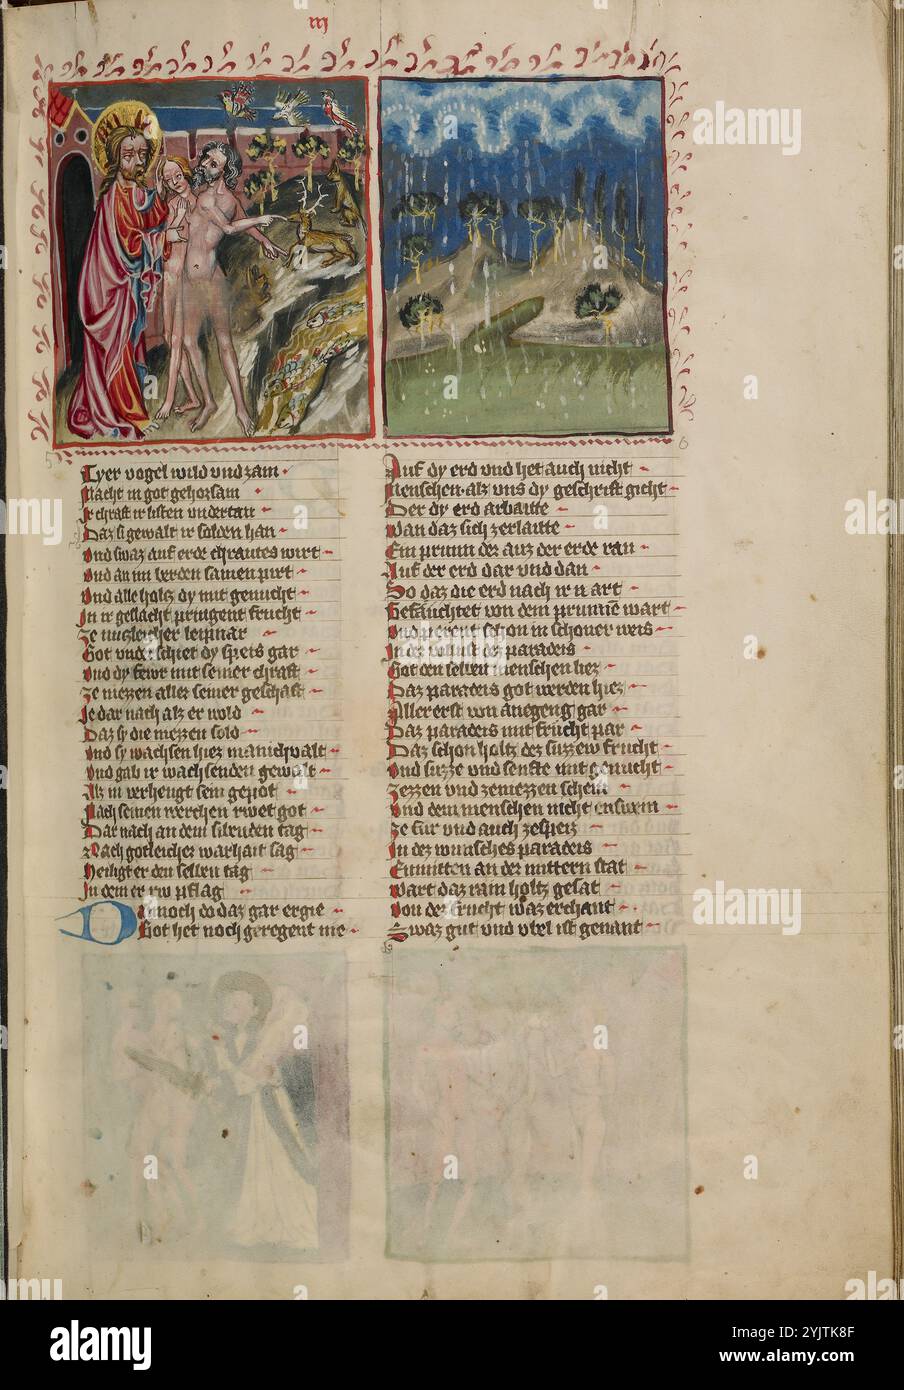 iij
5
6
Tyer vogel wild vnd zam
Macht in got gehorsam
Ir chraft ir listen vndertan
Daz si gewalt ir solden han
Vnd swaz auf erde chrautes wirt
Vnd an im berden samen pirt
Vnd alle holtz dy mit genucht
In ir geslacht pringent frucht
Ze nuczleicher leipnar
Got vnderschiet dy speis gar
Vnd dy fewr mit seiner chraft
Ze niezzen aller seiner geschaft
Ie dar nach als er wold
Daz sy die niezzen sold
Vnd sy wachsen hiez manichvalt
Vnd gab ir wachsenden gewalt
Als in verhengt sein gepot
Nach seinen werchen rwet got
Dar nach an dem sibenden tag
Nach gotleicher warhait sag
Heiligt er den selben tag
In dem er rw pflag
Dannoch do daz gar ergie
Got het noch geregent nie
Auf dy erd vnd het auch nicht
Menschen als vns dy geschrift gicht
Der dy erd arbaitte
Wan daz sich zerlaitte
Ein prunn der auz der erde ran
Auf der erd dar vnd dan
So daz die erd nach ir art
Gefäuchtet von dem prunne wart
Vnd pierent schon in schoner weis
In der wollust des paradeis
Got den selben menschen liez
Daz paradeis got werden hiez
Allererst von anegeng gar
Daz paradeis mit frucht par
Daz schon holtz der suzzew frucht
Vnd suzze vnd senfte mit genucht
Zezzen vnd zeniezzen schein
Vnd dem menschen nicht enswein
Ze fur vnd auch zespeis
In des wunsches paradeis
Enmitten an der mittern stat
Wart daz ram holtz gesat
Von der frucht waz erchant
Swaz gut vnd vbel ist genant
alamy
Image ID: 2YJTK8F
www.alamy.com